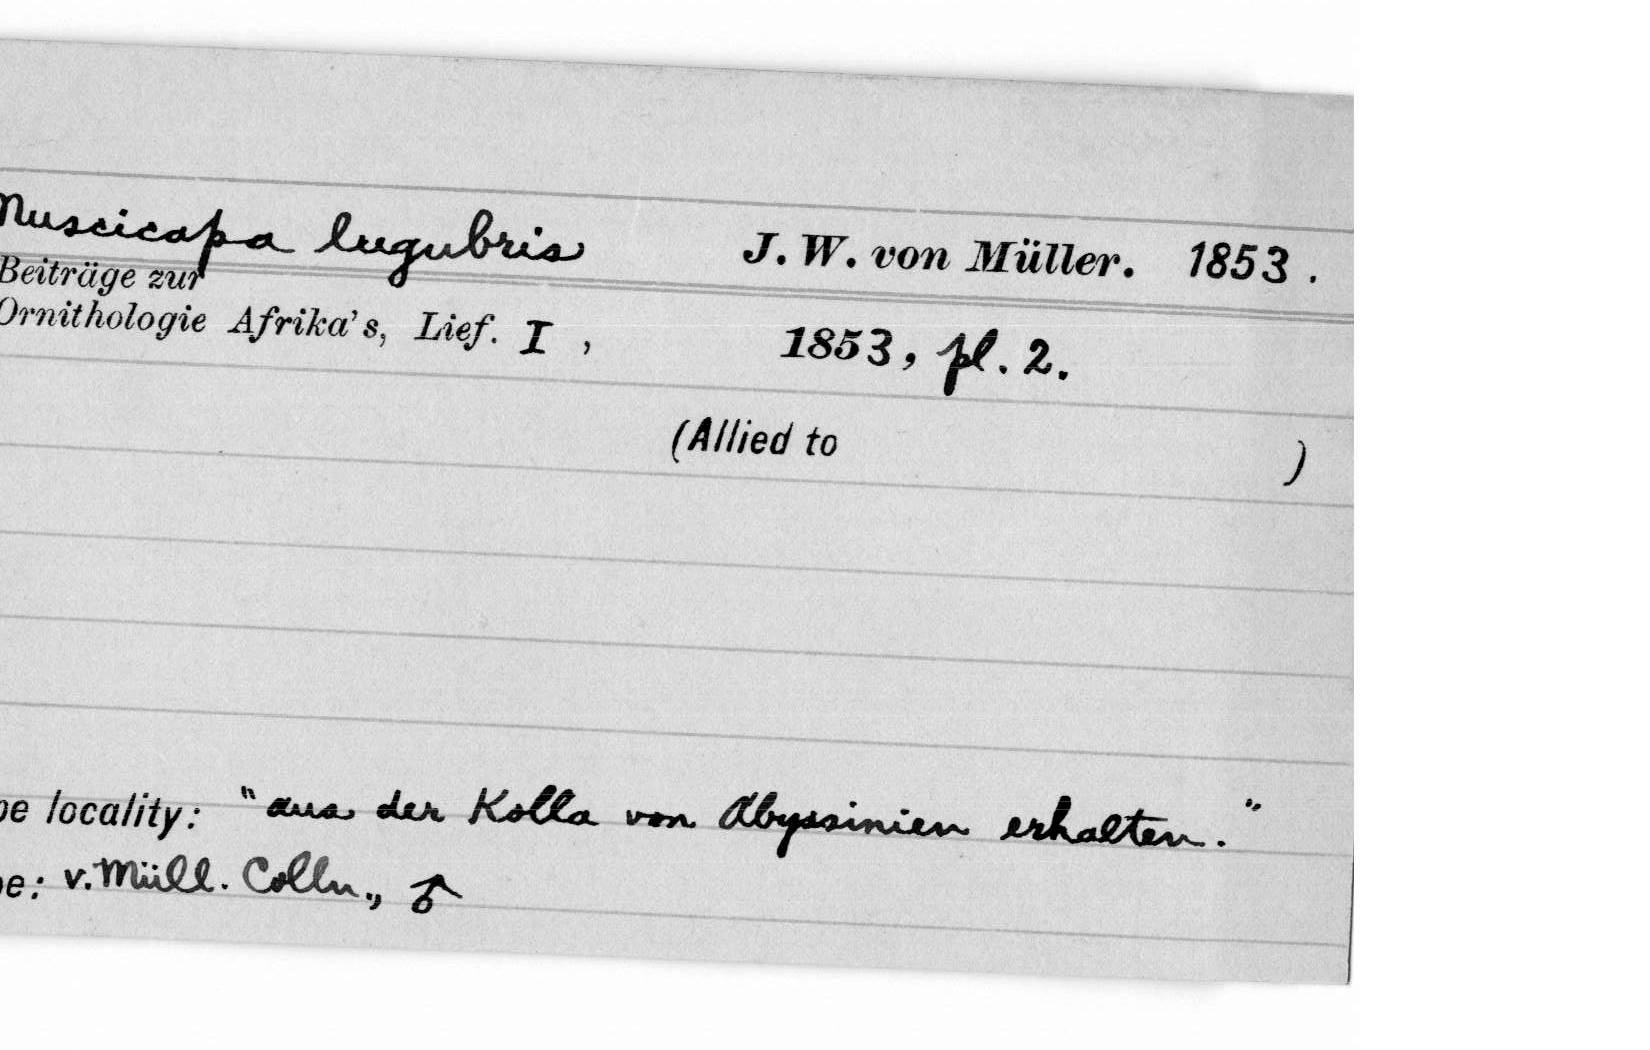 Muscicapa lugubris J. W. von Müller. 1853.
Beiträge zur
Ornithologie Afrika's, Lief. I, 1853, pl. 2.
(Allied to )
pe locality: "aus der Kolla von Abyssinien erhalten."
pe: v. Müll. Colln., ♂